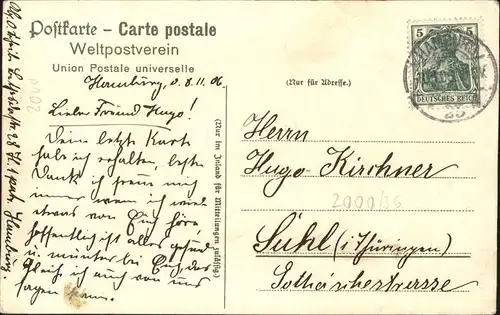 Postkarte – Carte postale
Weltpostverein
Union Postale universelle
Hamburg, d. 8.11.06.
(Nur für Adresse.)
Lieber Freund Hugo!
Deine letzte Karte
hab ich erhalten, besten
Dank ich freue mich
immer wenn ich mal
etwas von Euch höre,
hoffentlich ist alles gesund
u. munter bei Euch, das
gleich ich auch von uns
sagen kann.
(Nur im Inland für Mitteilungen zulässig)
5 5
DEUTSCHES REICH
HAMBURG
25
Herrn
Hugo Kirchner
2000/36
Suhl (i. Thüringen)
Gothaischestrasse
28 II Hamburg.
2000